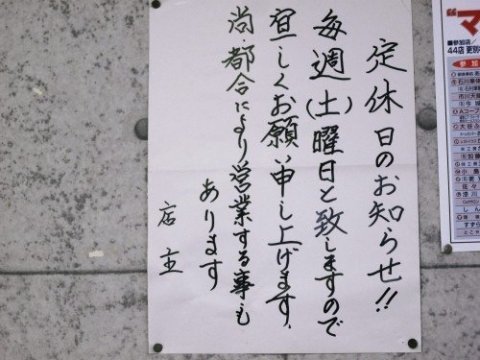 定休日のお知らせ!!
毎週(土)曜日と致しますので
宜しくお願い申し上げます、
尚、都合により営業する事も
あります
店主
"マ
■参加店/
44店 更別
参加